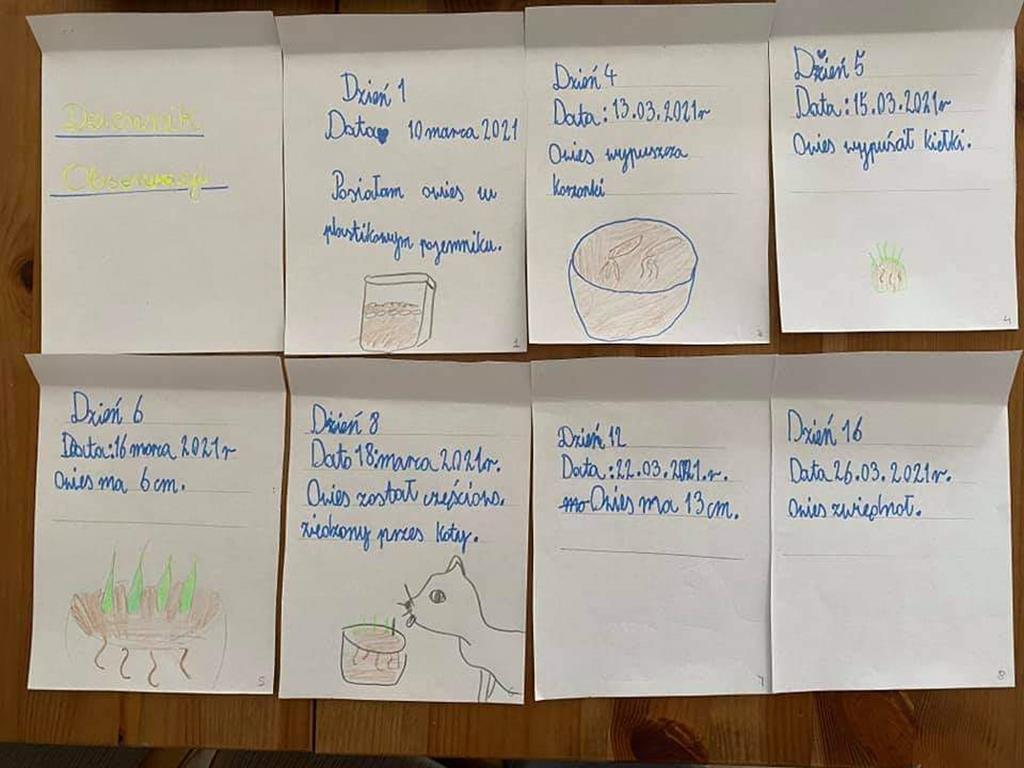 Dziennik
Obserwacji
Dzień 1
Data 10 marca 2021
Posiałam owies w
plastikowym pojemniku.
1
Dzień 4
Data: 13.03.2021r
Owies wypuszcza
korzonki
Dzień 5
Data: 15.03.2021r
Owies wypuśćał kiełki.
4
Dzień 6
Data: 16 marca 2021r
Owies ma 6 cm.
5
Dzień 8
Data 18 marca 2021r.
Owies został częściowo.
ziedzony przes koty.
Dzień 12
Data: 22.03.2021.r.
Owies ma 13 cm.
7
Dzień 16
Data 26.03.2021r.
Owies zwiędnoł.
8